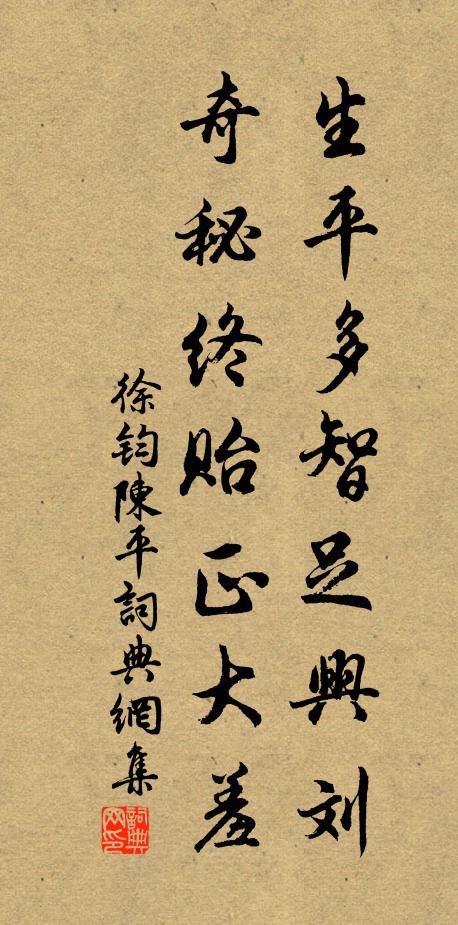 生平多智足興刘
奇秘终贻正大羞
徐钧陳平詞典網集
詞典网印